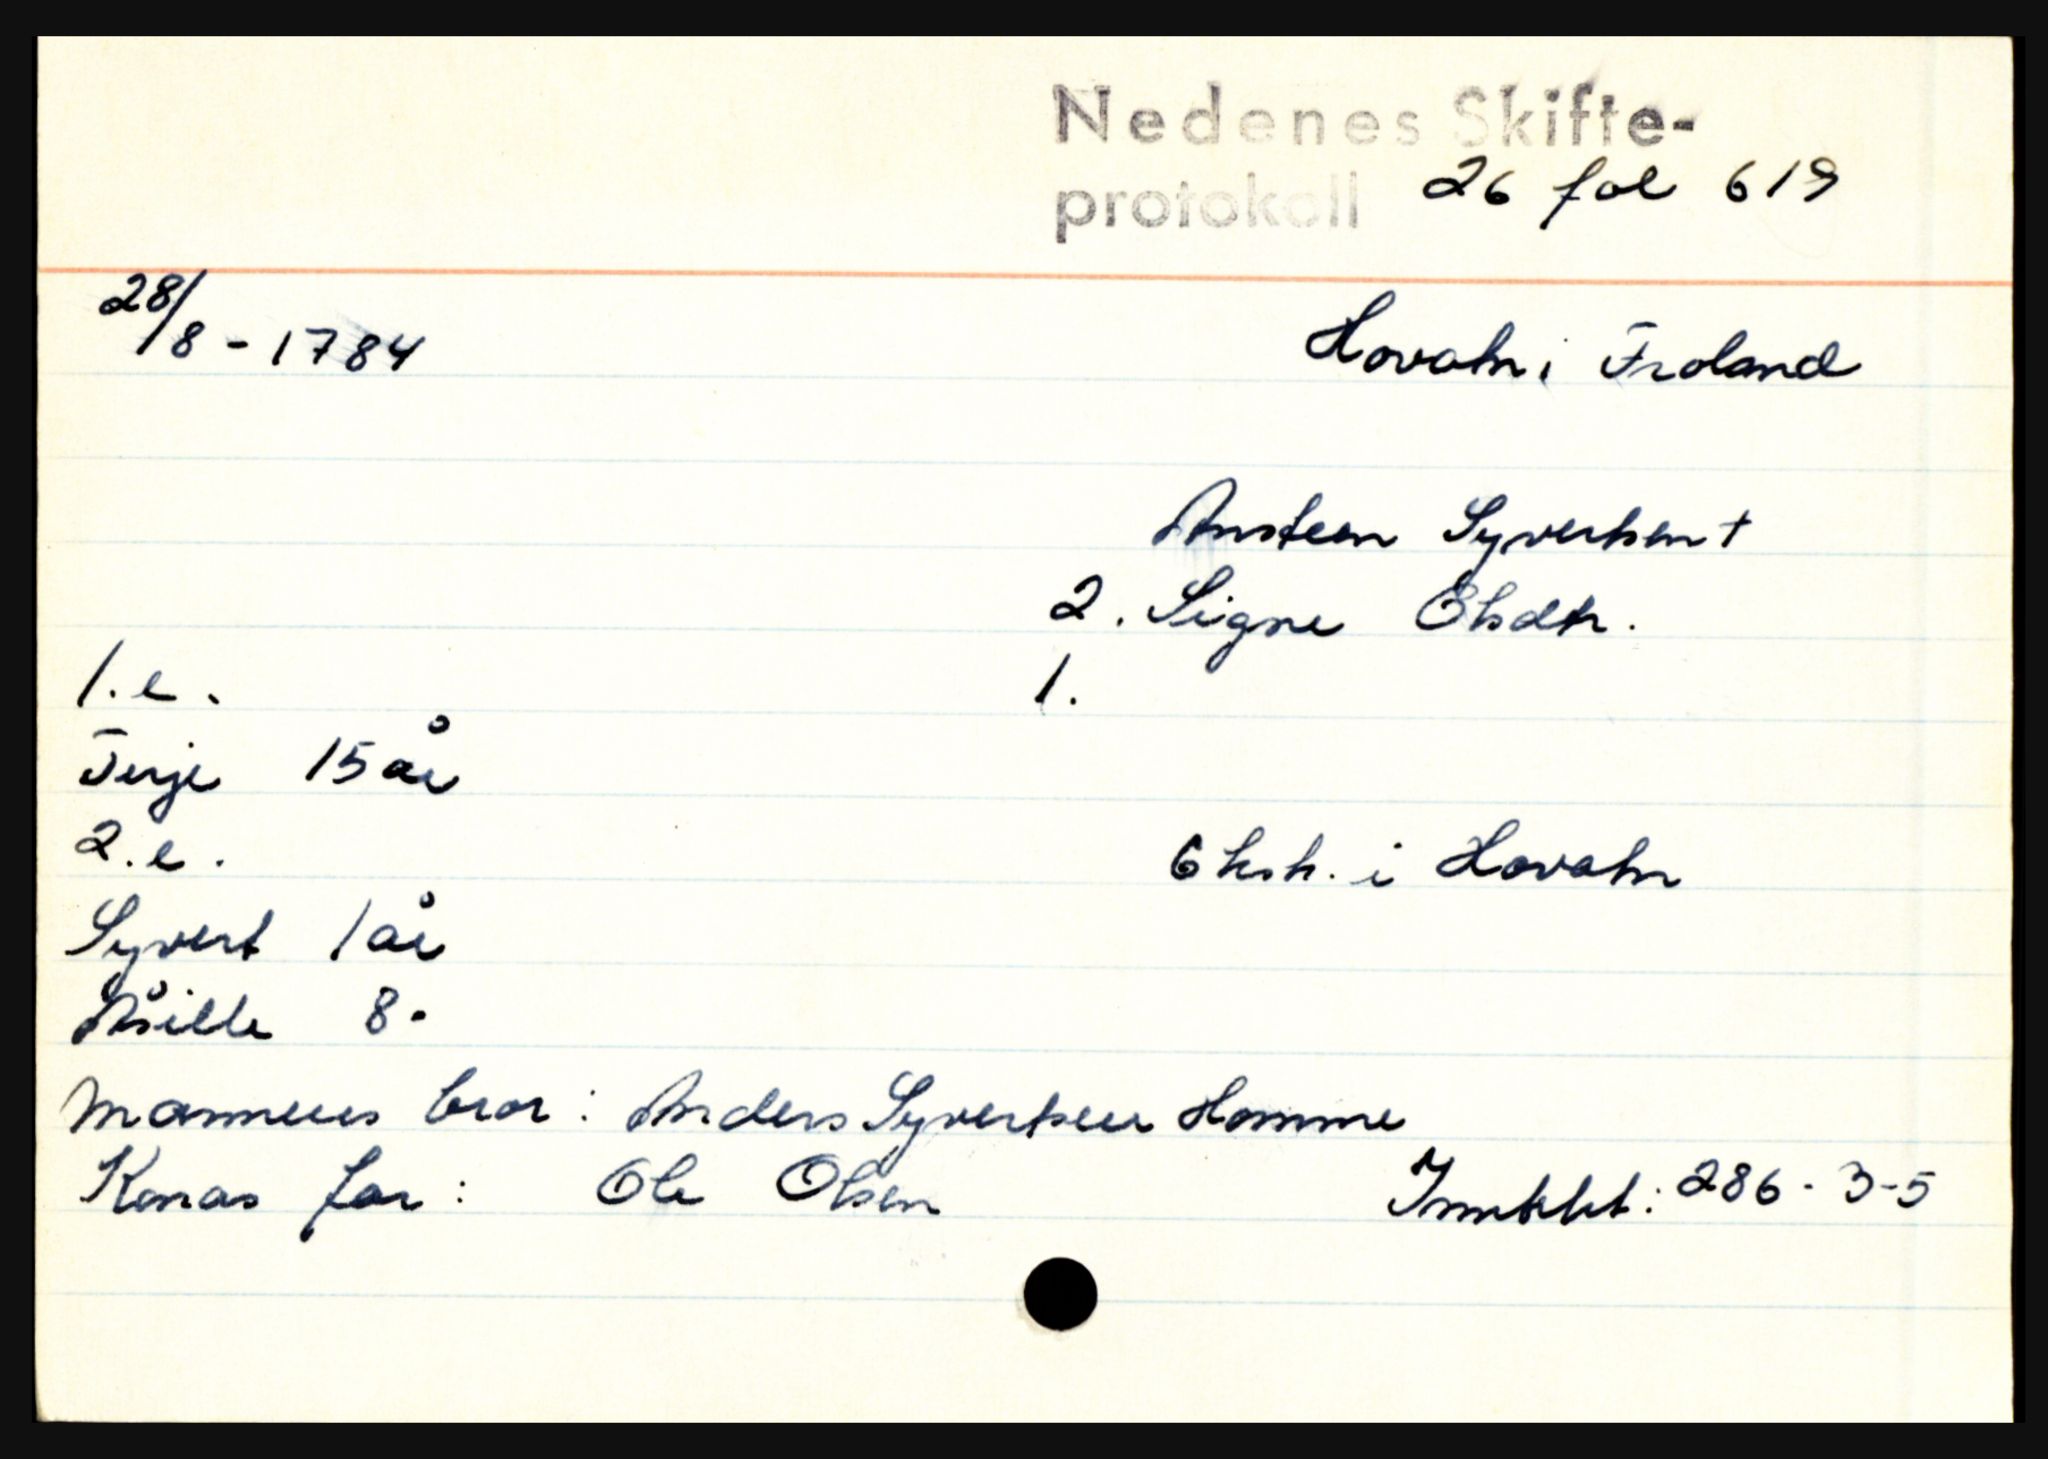 Nedenes Skifte-
protokoll 26 fol 619
28/8 - 1784 Hovatn i Froland
Ansteen Syvertsen +
2. Signe Olsdtr.
1.e. 1.
Terje 15 år
2.e. 6 ksk. i Hovatn
Syvert 1 år
Åsille 8 -
Mannens bror : Anders Syvertsen Homme
Konas far : Ole Olsen Inntekt : 286 - 3 - 5